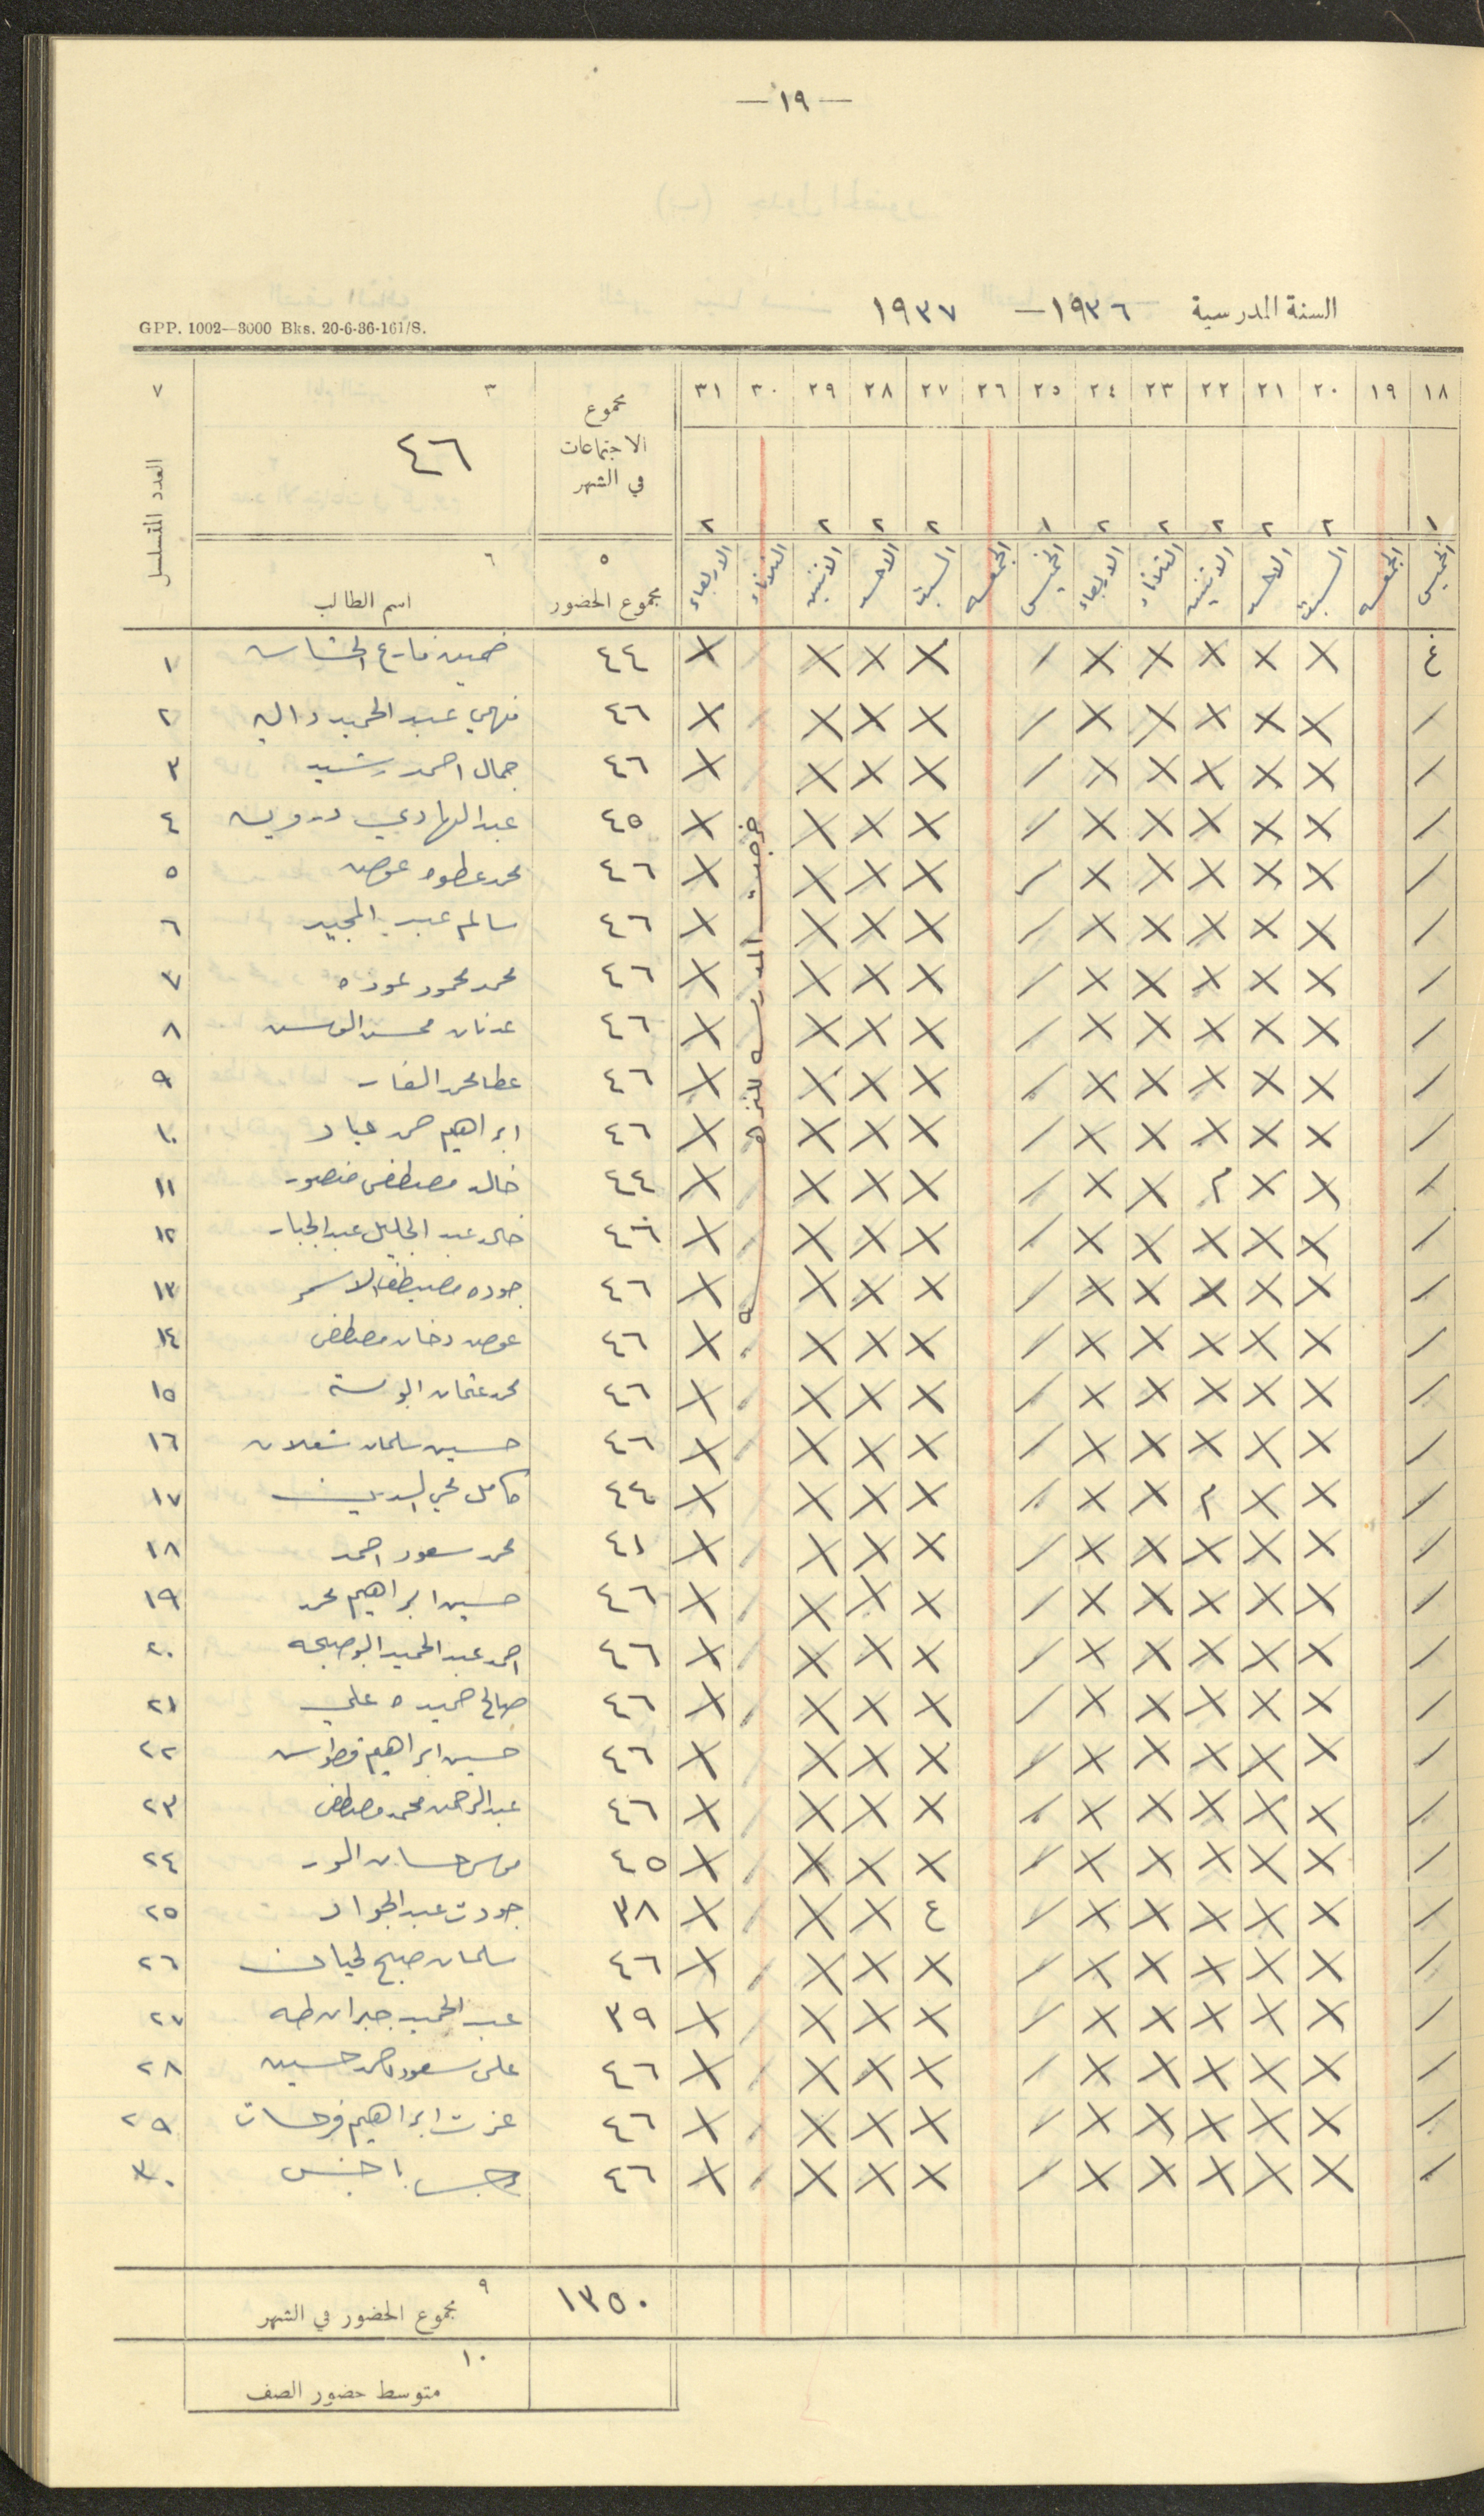 — ١٩ —
السنة المدرسية ١٩٣٦ — ١٩٣٧
GPP. 1002—3000 Bks. 20-6-36-161/S.
١٨ ١٩ ٢٠ ٢١ ٢٢ ٢٣ ٢٤ ٢٥ ٢٦ ٢٧ ٢٨ ٢٩ ٣٠ ٣١ مجموع الاجتماعات في الشهر ٣ ٤٦ ٧ العدد المتسلسل
١ ٢ ٢ ٢ ٢ ٢ ١ ٢ ٢ ٢ ٢
الخميس الجمعه السبت الاحد الاثنين الثلاثاء الاربعاء الخميس الجمعه السبت الاحد الاثنين الثلاثاء الاربعاء ٥ مجموع الحضور ٦ اسم الطالب
خرجت المدرسه للنزهه
غ / X X X X X / X X X X ٤٤ خميس فارع ١
/ X X X X X / X X X X ٤٦ فهمي عبد الحميد ٢
/ X X X X X / X X X X ٤٦ جمال احمد رشيد ٣
/ X X X X X / X X X X ٤٥ عبد الهادي درويش ٤
/ X X X X X / X X X X ٤٦ محمد عطوه عوض ٥
/ X X X X X / X X X X ٤٦ سالم عبد المجيد ٦
/ X X X X X / X X X X ٤٦ محمد محمود عوده ٧
/ X X X X X / X X X X ٤٦ عدنان محسن ٨
/ X X X X X / X X X X ٤٦ عطا محمد الفار ٩
/ X X X X X / X X X X ٤٦ ابراهيم حمد عياد ١٠
/ X X م X X / X X X X ٤٤ خالد مصطفى منصور ١١
/ X X X X X / X X X X ٤٦ خالد عبد الجليل عبد الجبار ١٢
/ X X X X X / X X X X ٤٦ جوده مصطفى الاسمر ١٣
/ X X X X X / X X X X ٤٦ عوض دخان مصطفى ١٤
/ X X X X X / X X X X ٤٦ محمد عثمان ابو سته ١٥
/ X X X X X / X X X X ٤٦ حسين سلمان شعلان ١٦
/ X X م X X / X X X X ٤٤ كامل محي الدين ١٧
/ X X X X X / X X X X ٤١ محمد سعود احمد ١٨
/ X X X X X / X X X X ٤٦ حسين ابراهيم محمد ١٩
/ X X X X X / X X X X ٤٦ احمد عبد الحميد ابو صبحه ٢٠
/ X X X X X / X X X X ٤٦ صالح حميده علي ٢١
/ X X X X X / X X X X ٤٦ حسين ابراهيم ٢٢
/ X X X X X / X X X X ٤٦ عبد الرحمن محمد مصطفى ٢٣
/ X X X X X / X X X X ٤٥ حسان ٢٤
/ X X X X X / غ X X X ٣٨ جودت عبد الجواد ٢٥
/ X X X X X / X X X X ٤٦ سلمان صبح ٢٦
/ X X X X X / X X X X ٣٩ عبد الحميد جبران طه ٢٧
/ X X X X X / X X X X ٤٦ علي سعود حسين ٢٨
/ X X X X X / X X X X ٤٦ عزت ابراهيم فرحات ٢٩
/ X X X X X / X X X X ٤٦ ٣٠
١٣٥٠ ٩ مجموع الحضور في الشهر
١٠ متوسط حضور الصف